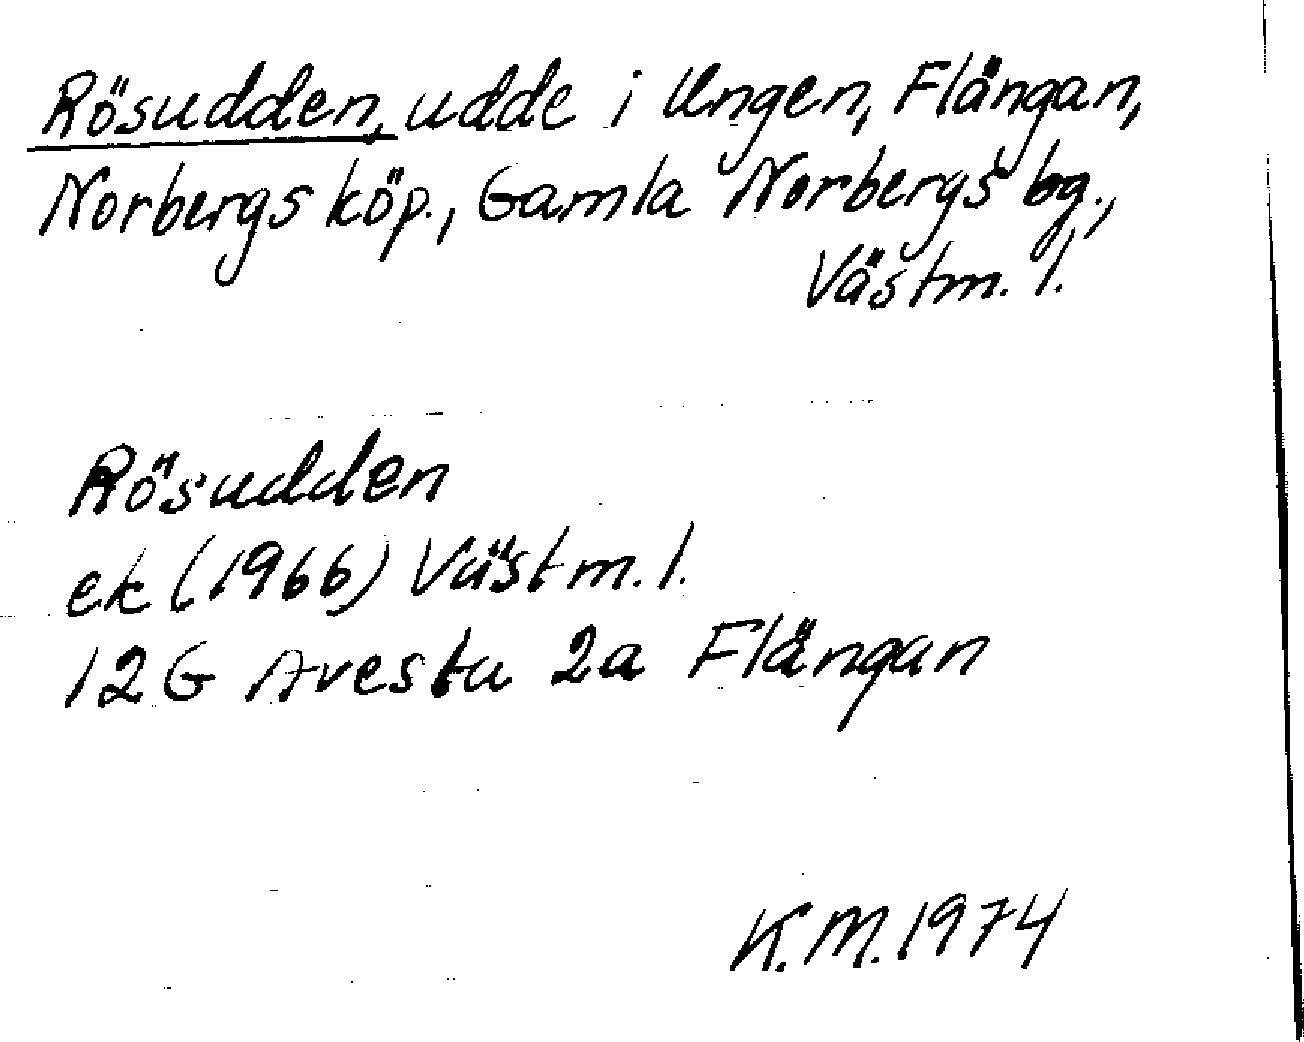 Rösudden, udde i Ungen, Flängan,
Norbergs köp., Gamla Norbergs bg.,
Västm. l.
Rösudden
ek (1966) Västm. l.
12 G Avesta 2a Flängan
K.M. 1974